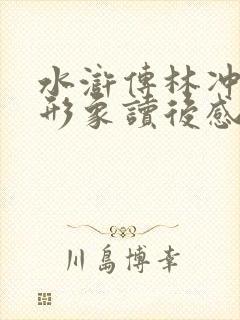 水滸傳林冲
形象讀後感
川島博幸